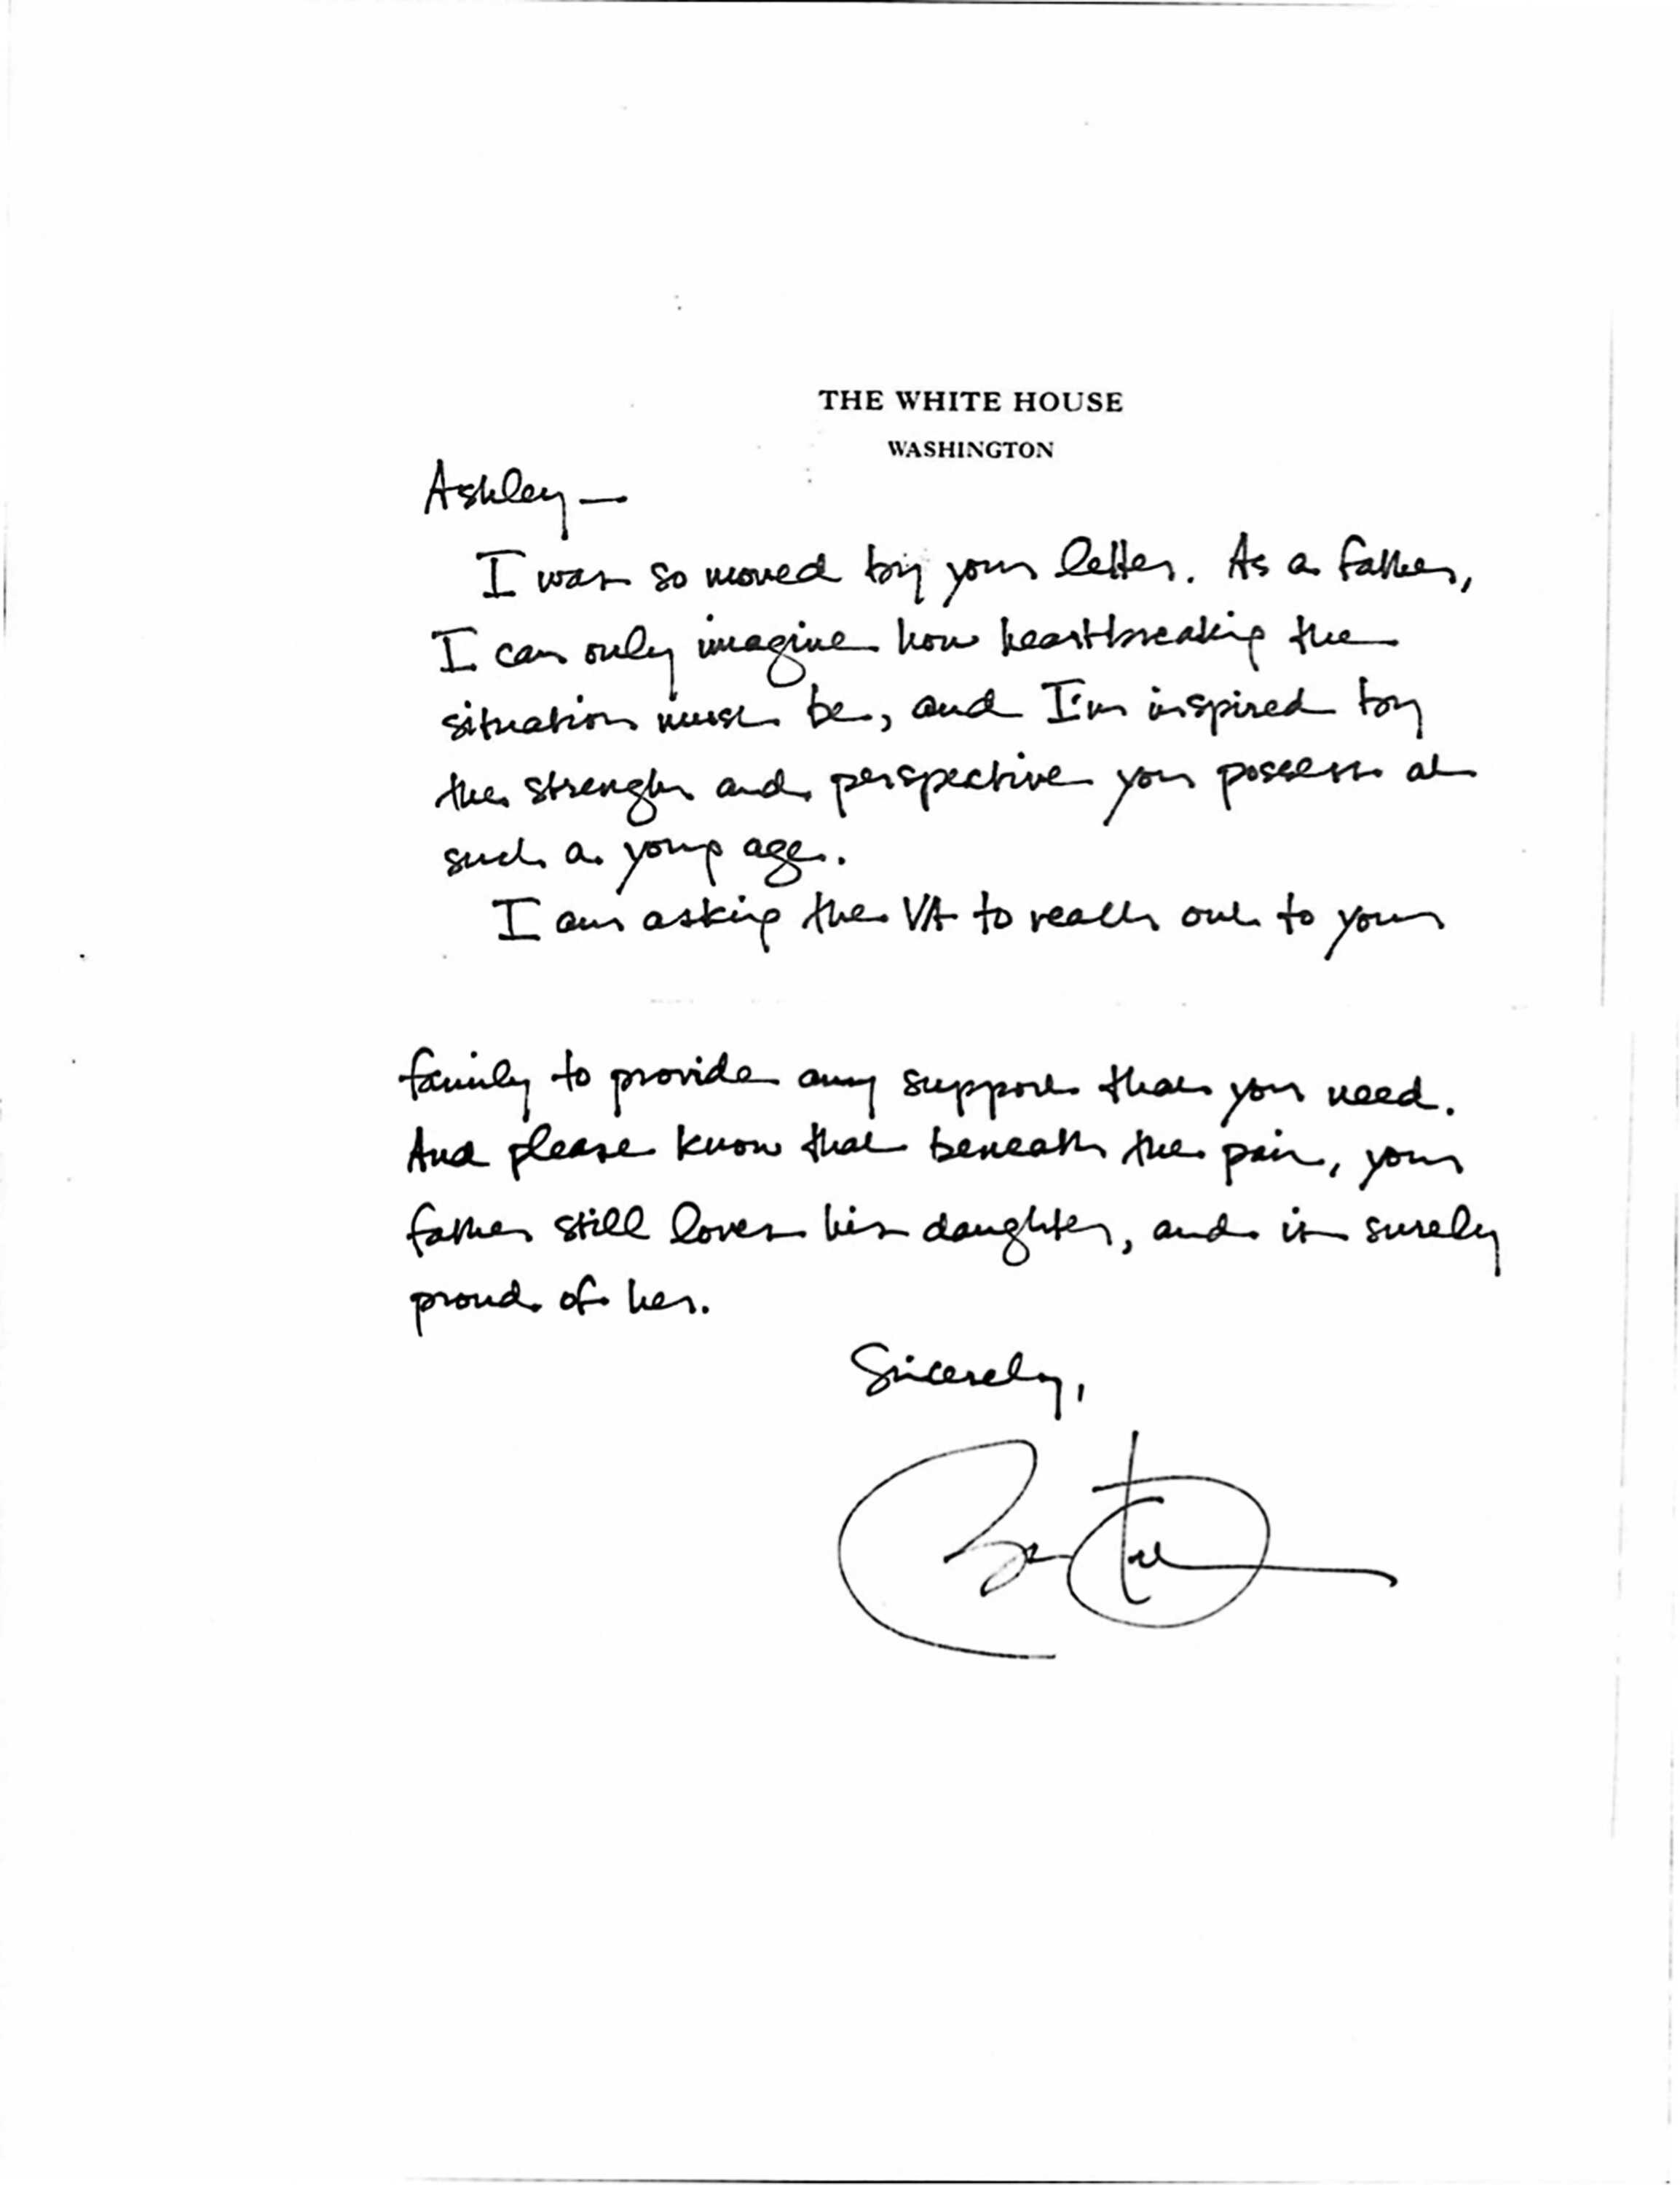 THE WHITE HOUSE
WASHINGTON
Ashley —
I was so moved by your letter. As a father,
I can only imagine how heartbreaking the
situation must be, and I'm inspired by
the strength and perspective you possess at
such a young age.
I am asking the VA to reach out to your
family to provide any support that you need.
And please know that beneath the pain, your
father still loves his daughter, and is surely
proud of her.
Sincerely,